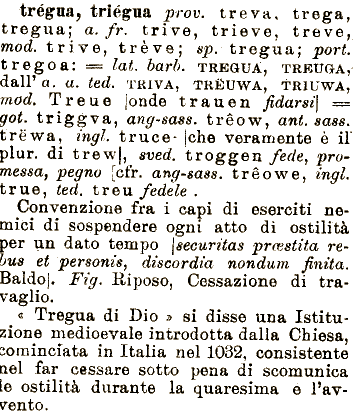 trégua, triégua prov. treva, trega,
tregua; a. fr. trive, trieve, treve,
mod. trive, trève; sp. tregua; port.
tregoa: = lat. barb. TREGUA, TREUGA,
dall' a. a. ted. TRIVA, TRËUWA, TRIUWA,
mod. Treue |onde trauen fidarsi| =
got. triggva, ang-sass. trêow, ant. sass.
trëwa, ingl. truce |che veramente è il
plur. di trew|, sved. troggen fede, pro-
messa, pegno [cfr. ang-sass. trêowe, ingl.
true, ted. treu fedele .
Convenzione fra i capi di eserciti ne-
mici di sospendere ogni atto di ostilità
per un dato tempo |securitas præstita re-
bus et personis, discordia nondum finita.
Baldo|. Fig. Riposo, Cessazione di tra-
vaglio.
« Tregua di Dio » si disse una Istitu-
zione medioevale introdotta dalla Chiesa,
cominciata in Italia nel 1032, consistente
nel far cessare sotto pena di scomunica
le ostilità durante la quaresima e l'av-
vento.